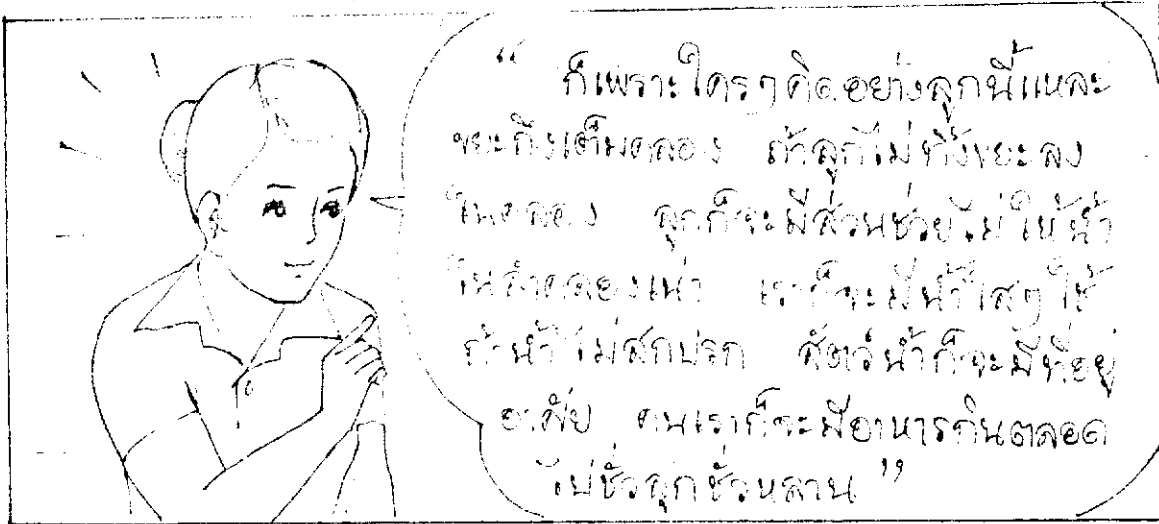 “ ก็เพราะใครๆคิดอย่างลูกนี้แหละ
ขยะถึงเต็มคลอง ถ้าลูกไม่ทิ้งขยะลง
ในคลอง ลูกก็จะมีส่วนช่วยไม่ให้น้ำ
ในลำคลองเน่า เราก็จะมีน้ำใสๆใช้
ถ้าน้ำไม่สกปรก สัตว์น้ำก็จะมีที่อยู่
อาศัย คนเราก็จะมีอาหารกินตลอด
ไปชั่วลูกชั่วหลาน ”